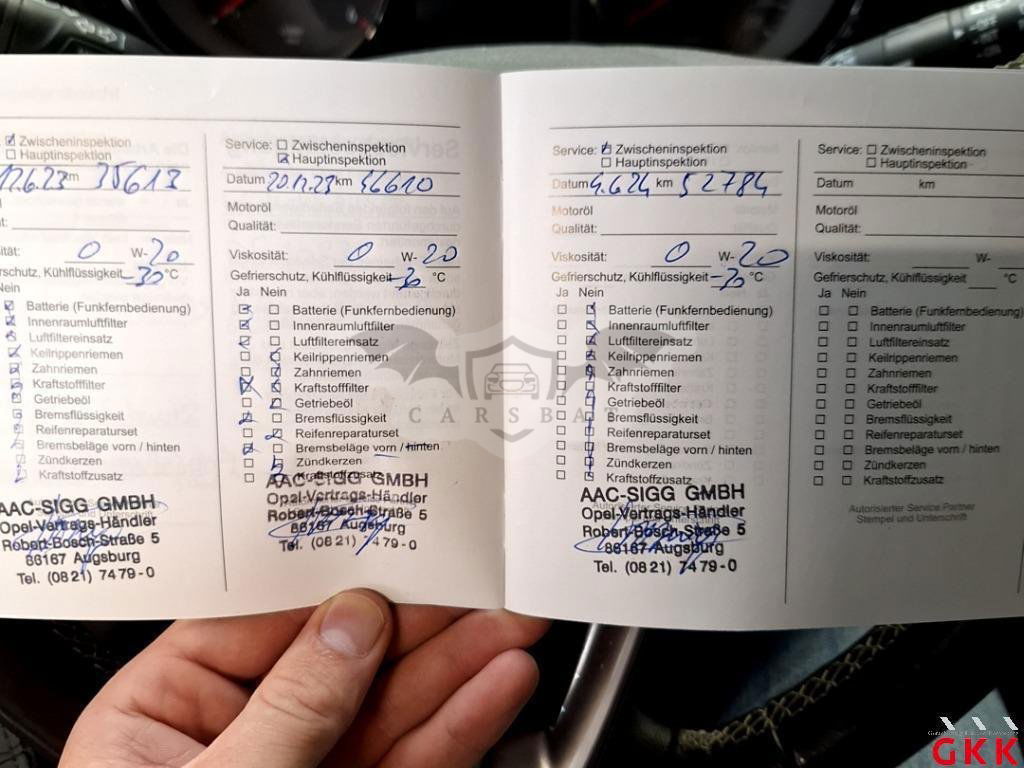 Zwischeninspektion
Hauptinspektion
12.6.23 km 35613
ät:
ität: 0 W-20
erschutz, Kühlflüssigkeit -30 °C
Nein
Batterie (Funkfernbedienung)
Innenraumluftfilter
Luftfiltereinsatz
Keilrippenriemen
Zahnriemen
Kraftstofffilter
Getriebeöl
Bremsflüssigkeit
Reifenreparaturset
Bremsbeläge vorn / hinten
Zündkerzen
Kraftstoffzusatz
AAC-SIGG GMBH
Opel-Vertrags-Händler
Robert-Bosch-Straße 5
86167 Augsburg
Tel. (08 21) 74 79-0
Service: Zwischeninspektion
Hauptinspektion
Datum 20.12.23 km 46610
Motoröl
Qualität:
Viskosität: 0 W-20
Gefrierschutz, Kühlflüssigkeit -30 °C
Ja Nein
Batterie (Funkfernbedienung)
Innenraumluftfilter
Luftfiltereinsatz
Keilrippenriemen
Zahnriemen
Kraftstofffilter
Getriebeöl
Bremsflüssigkeit
Reifenreparaturset
Bremsbeläge vorn / hinten
Zündkerzen
Kraftstoffzusatz
AAC-SIGG GMBH
Opel-Vertrags-Händler
Robert-Bosch-Straße 5
86167 Augsburg
Tel. (08 21) 74 79-0
Service: Zwischeninspektion
Hauptinspektion
Datum 4.6.24 km 52784
Motoröl
Qualität:
Viskosität: 0 W-20
Gefrierschutz, Kühlflüssigkeit -30 °C
Ja Nein
Batterie (Funkfernbedienung)
Innenraumluftfilter
Luftfiltereinsatz
Keilrippenriemen
Zahnriemen
Kraftstofffilter
Getriebeöl
Bremsflüssigkeit
Reifenreparaturset
Bremsbeläge vorn / hinten
Zündkerzen
Kraftstoffzusatz
AAC-SIGG GMBH
Opel-Vertrags-Händler
Robert-Bosch-Straße 5
86167 Augsburg
Tel. (08 21) 74 79-0
Service: Zwischeninspektion
Hauptinspektion
Datum km
Motoröl
Qualität:
Viskosität: W-
Gefrierschutz, Kühlflüssigkeit °C
Ja Nein
Batterie (Funkfernbedienung)
Innenraumluftfilter
Luftfiltereinsatz
Keilrippenriemen
Zahnriemen
Kraftstofffilter
Getriebeöl
Bremsflüssigkeit
Reifenreparaturset
Bremsbeläge vorn / hinten
Zündkerzen
Kraftstoffzusatz
Autorisierter Service Partner
Stempel und Unterschrift
CARSBAT
GKK